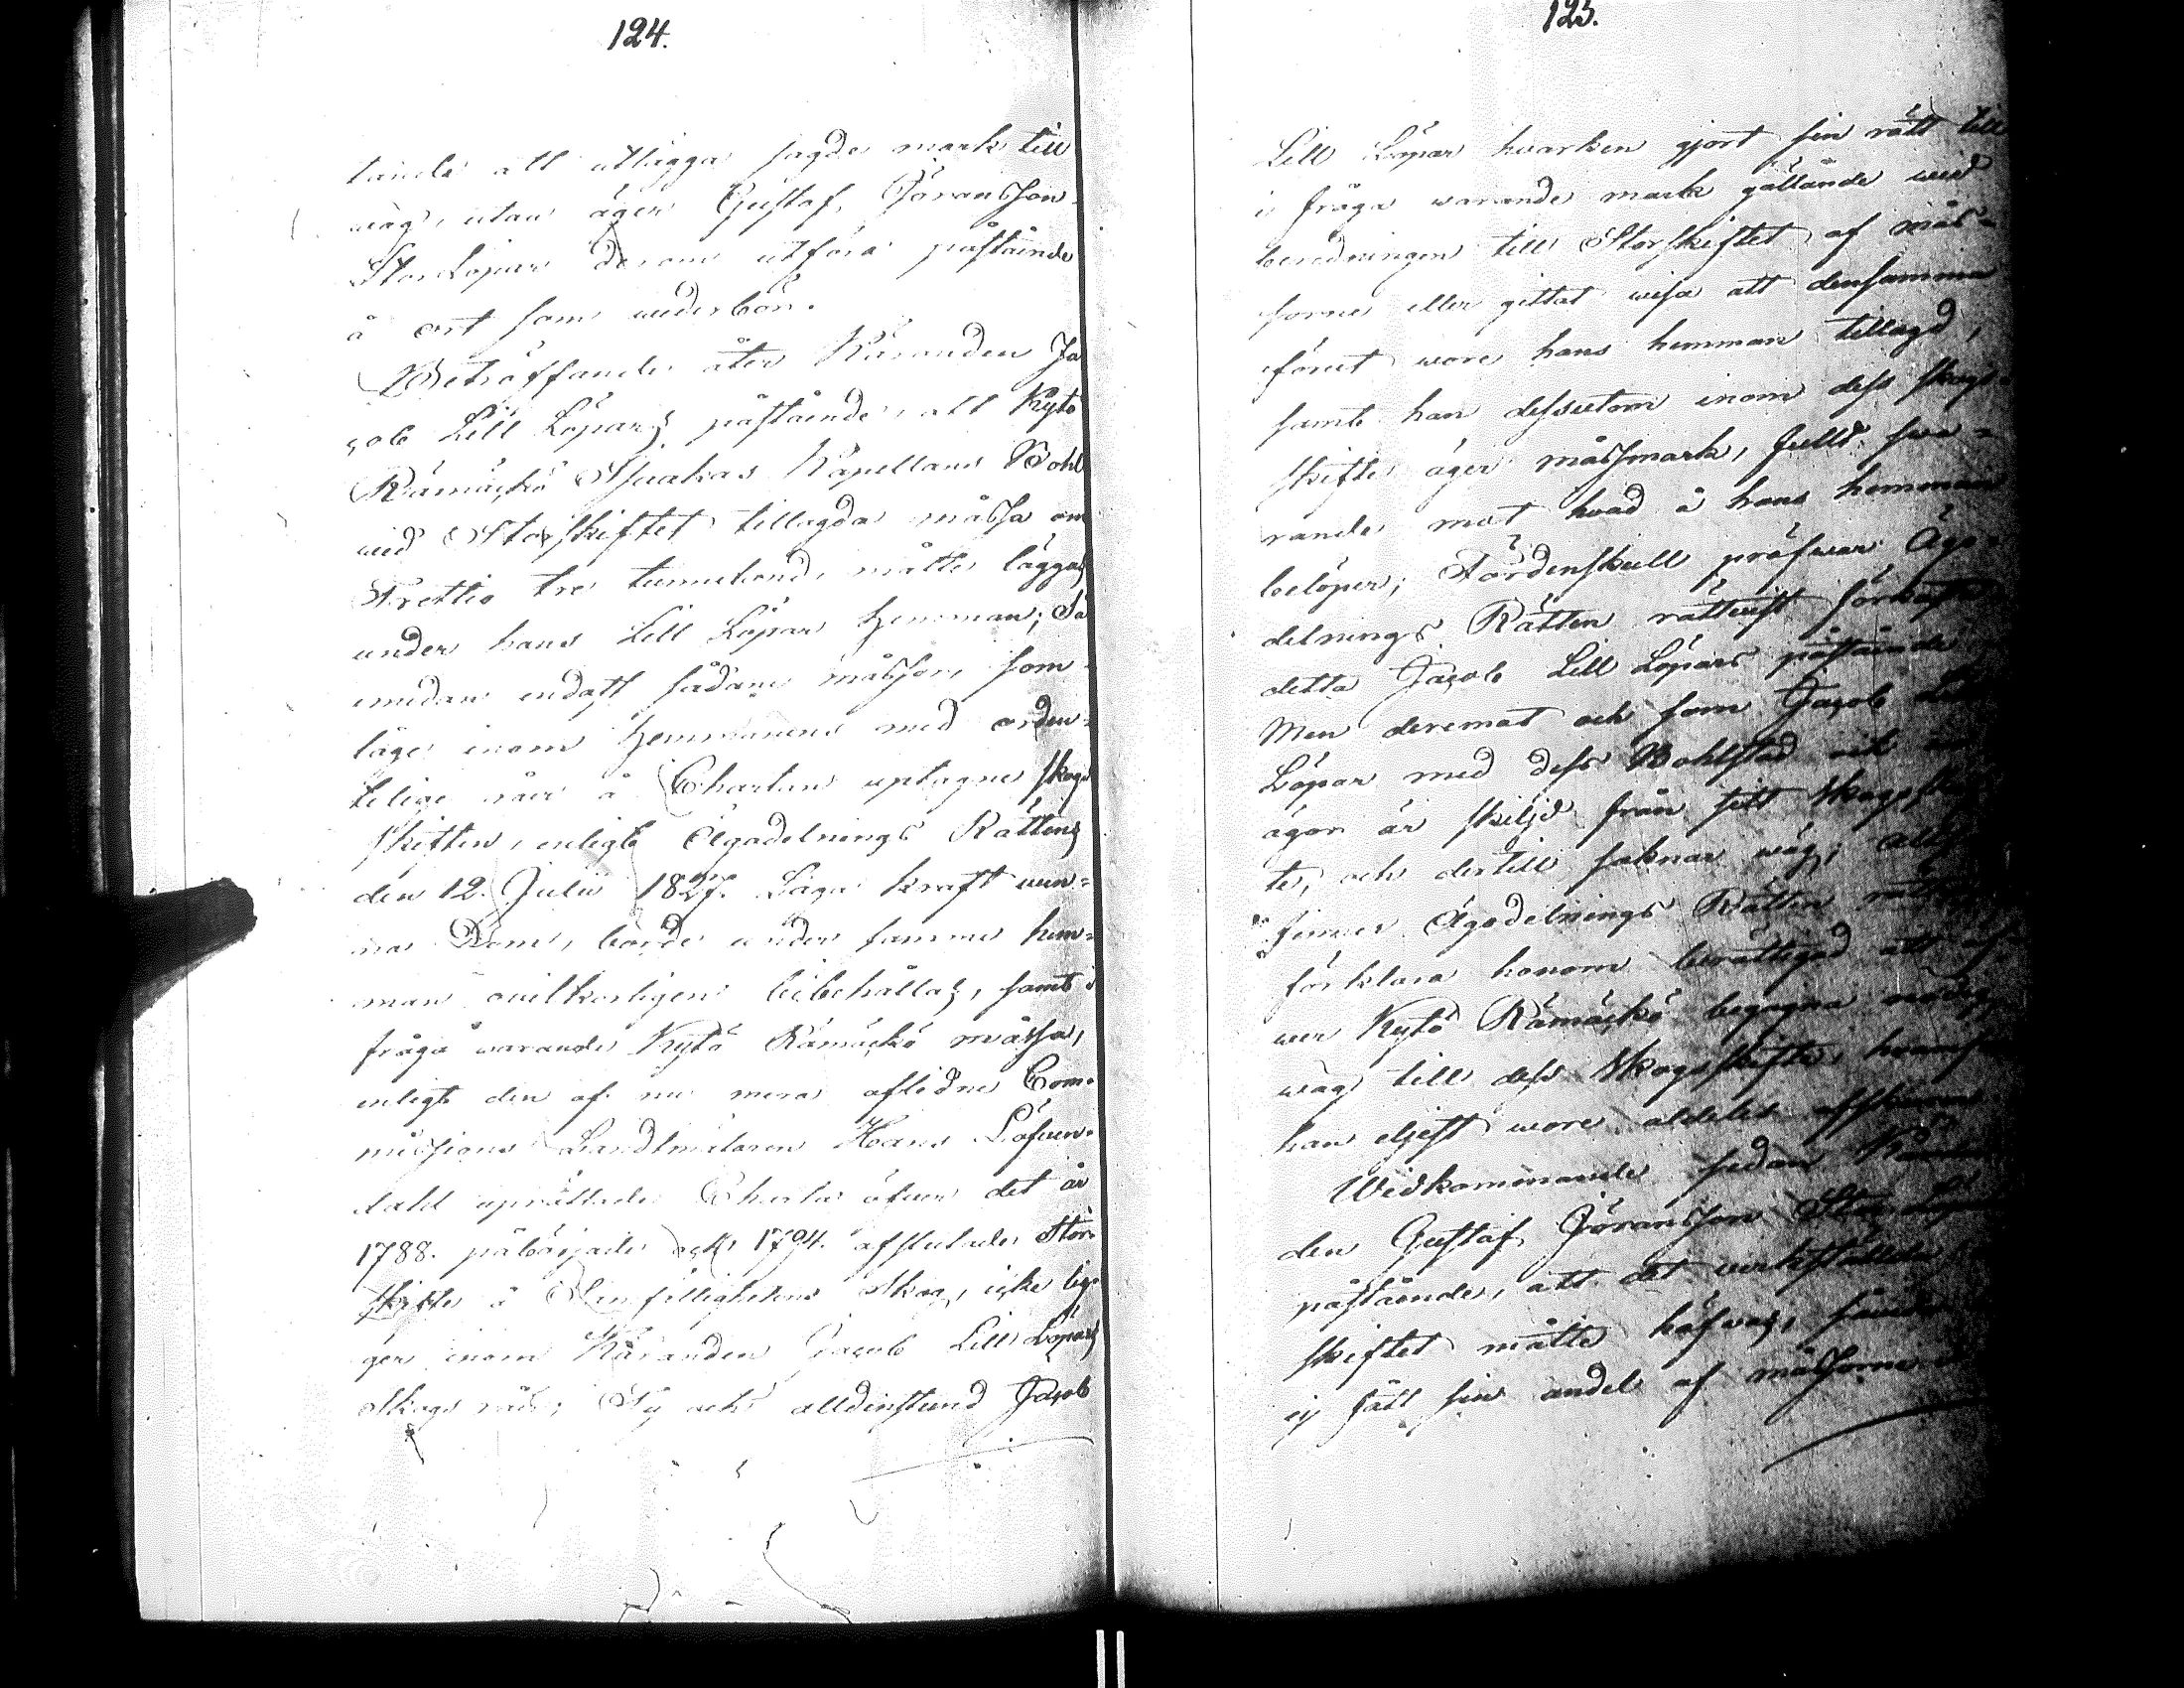 124.
tande att utlägga sagde mark till
wäg, utan äger Gustaf Jöransson
StorLöpar derom utföra påstående
å ort som wederbör.
Beträffande åter Käranden Ja
cob Lill Löpars påstående, att Kytö
Rämäckö Kapellans Bohl
wid Storskiftet tillagda måssa om
Trettio tre tunneland, måtte läggas
under hans Lill Löpar Hemman; Så
emedan endast sådane måssor, som
läge inom Hemmanens med orden=
telige råer å Chartan uptagne skogs
skiften, enligt Ägodelnings Rättens
den 12. Julii 1827. Laga kraft wun=
na Dom, borde under samma hem=
man owilkorligen bibehållas, samt i
fråga warande Kytö Rämäckö måssa,
enligt den af nu mera aflidne Com=
missions Landtmätaren Hans Löfwen=
dahl uprättade Charta öfwer det år
1788. påbörjade och 1794. afslutade Stor=
skifte å Skog, icke lig=
ger inom Käranden Jacob Lill Löpars
Skogs råer; Ty och alldenstund Jacob
125.
Lill Löpar hwarken gjort sin rätt till
i fråga warande mark gällande wid
beredningen till Storskiftet af mås=
sorne eller gittat wisa att densamma
förut wore hans hemman tillagd,
samt han dessutom inom dess skogs=
skifte äger måssmark, fullt swa=
rande mot hwad å hans hemman
belöper; Fördenskull pröfwar Ägo=
delnings Rätten rättwist förkasta
detta Jacob Lill Löpars påstående
Men deremot och som Jacob Lill
Löpar med dess Bohlstad och
ägor är skiljd från sitt Skogsskif
te, och dertill saknar wäg; Altså
finner Ägodelnings Rätten
förklara honom berättigad att öf
wer Kytö Rämäckö begagna nödig
wäg till dess Skogsskifte, hwarifrån
han eljest wore aldeles afskuren
Widkommande sedan Käran
den Gustaf Jöransson Stor Löpars
påstående, att det werkstälda
skiftet måtte häfwas,
ej fått sin andel af måssorne